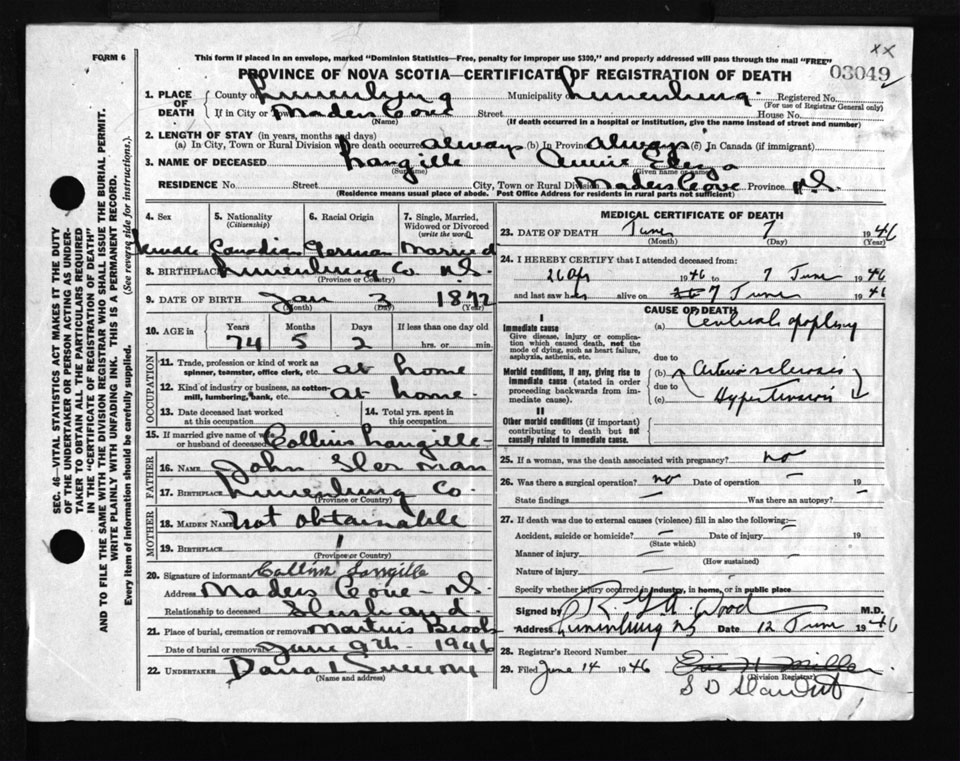 FORM 6
This form if placed in an envelope, marked "Dominion Statistics—Free, penalty for improper use $300," and properly addressed will pass through the mail "FREE"
xx
PROVINCE OF NOVA SCOTIA—CERTIFICATE OF REGISTRATION OF DEATH
03049
1. PLACE OF DEATH
County of Lunenburg Municipality of Lunenburg. Registered No.
(For use of Registrar General only)
If in City or Town Maders Cove Street House No.
(Name) (If death occurred in a hospital or institution, give the name instead of street and number)
2. LENGTH OF STAY (in years, months and days)
(a) In City, Town or Rural Division where death occurred always (b) In Province always (c) In Canada (if immigrant)
3. NAME OF DECEASED Langille Annie Eliza
(Surname) (Given name or names)
RESIDENCE No. Street City, Town or Rural Division Maders Cove Province N.S.
(Residence means usual place of abode. Post Office Address for residents in rural parts not sufficient)
SEC. 46—VITAL STATISTICS ACT MAKES IT THE DUTY
OF THE UNDERTAKER OR PERSON ACTING AS UNDER-
TAKER TO OBTAIN ALL THE PARTICULARS REQUIRED
IN THE "CERTIFICATE OF REGISTRATION OF DEATH"
AND TO FILE THE SAME WITH THE DIVISION REGISTRAR WHO SHALL ISSUE THE BURIAL PERMIT.
WRITE PLAINLY WITH UNFADING INK. THIS IS A PERMANENT RECORD.
Every item of information should be carefully supplied. (See reverse side for instructions.)
4. Sex 5. Nationality (Citizenship) 6. Racial Origin 7. Single, Married, Widowed or Divorced (write the word)
Female Canadian German Married
8. BIRTHPLACE Lunenburg Co. N.S.
(Province or Country)
9. DATE OF BIRTH Jan 3 1872
(Month) (Day) (Year)
10. AGE in Years Months Days If less than one day old
74 5 2 hrs. or min.
OCCUPATION
11. Trade, profession or kind of work as spinner, teamster, office clerk, etc. at home
12. Kind of industry or business, as cotton-mill, lumbering, bank, etc. at home.
13. Date deceased last worked at this occupation 14. Total yrs. spent in this occupation
15. If married give name of wife or husband of deceased Collins Langille
FATHER
16. NAME John
17. BIRTHPLACE Lunenburg Co.
(Province or Country)
MOTHER
18. MAIDEN NAME Not obtainable
19. BIRTHPLACE
(Province or Country)
20. Signature of informant Collins Langille
Address Maders Cove N.S.
Relationship to deceased Husband.
21. Place of burial, cremation or removal Martins Brook
Date of burial or removal June 9th - 1946
22. UNDERTAKER
(Name and address)
MEDICAL CERTIFICATE OF DEATH
23. DATE OF DEATH June 7 1946
(Month) (Day) (Year)
24. I HEREBY CERTIFY that I attended deceased from:
26 Apr 1946 to 7 June 1946
and last saw her alive on 7 June 1946
CAUSE OF DEATH
I
Immediate cause (a) Cerebral apoplexy
Give disease, injury or complication which caused death, not the mode of dying, such as heart failure, asphyxia, asthenia, etc.
due to
Morbid conditions, if any, giving rise to immediate cause (stated in order proceeding backwards from immediate cause).
(b) Arteriosclerosis
due to
(c) Hypertension
II
Other morbid conditions (if important) contributing to death but not causally related to immediate cause.
25. If a woman, was the death associated with pregnancy? no
26. Was there a surgical operation? no Date of operation 19
State findings Was there an autopsy?
27. If death was due to external causes (violence) fill in also the following:—
Accident, suicide or homicide? Date of injury 19
(State which)
Manner of injury
(How sustained)
Nature of injury
Specify whether injury occurred in industry, in home, or in public place
Signed by Wood M.D.
Address Lunenburg NS Date 12 June 1946
28. Registrar's Record Number
29. Filed June 14 1946 Miller
(Division Registrar)